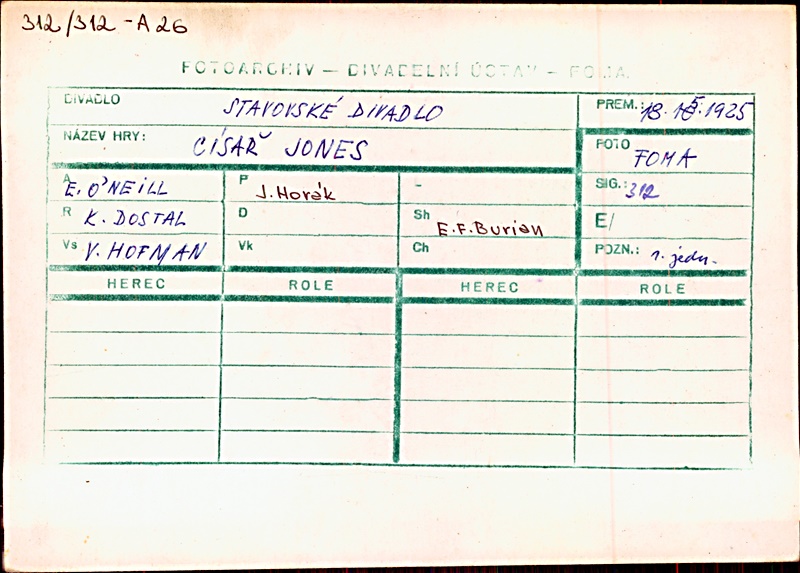 312/312 - A 26
FOTOARCHIV — DIVADELNÍ ÚSTAV — FOMA
DIVADLO STAVOVSKÉ DIVADLO PREM.: 18. 5. 1925
NÁZEV HRY: CÍSAŘ JONES FOTO FOMA
A E. O'NEILL P J. Horák - SIG.: 312
R K. DOSTAL D Sh E.F. Burian E/
Vs V. HOFMAN Vk Ch POZN.: 1. jedn.
HEREC ROLE HEREC ROLE